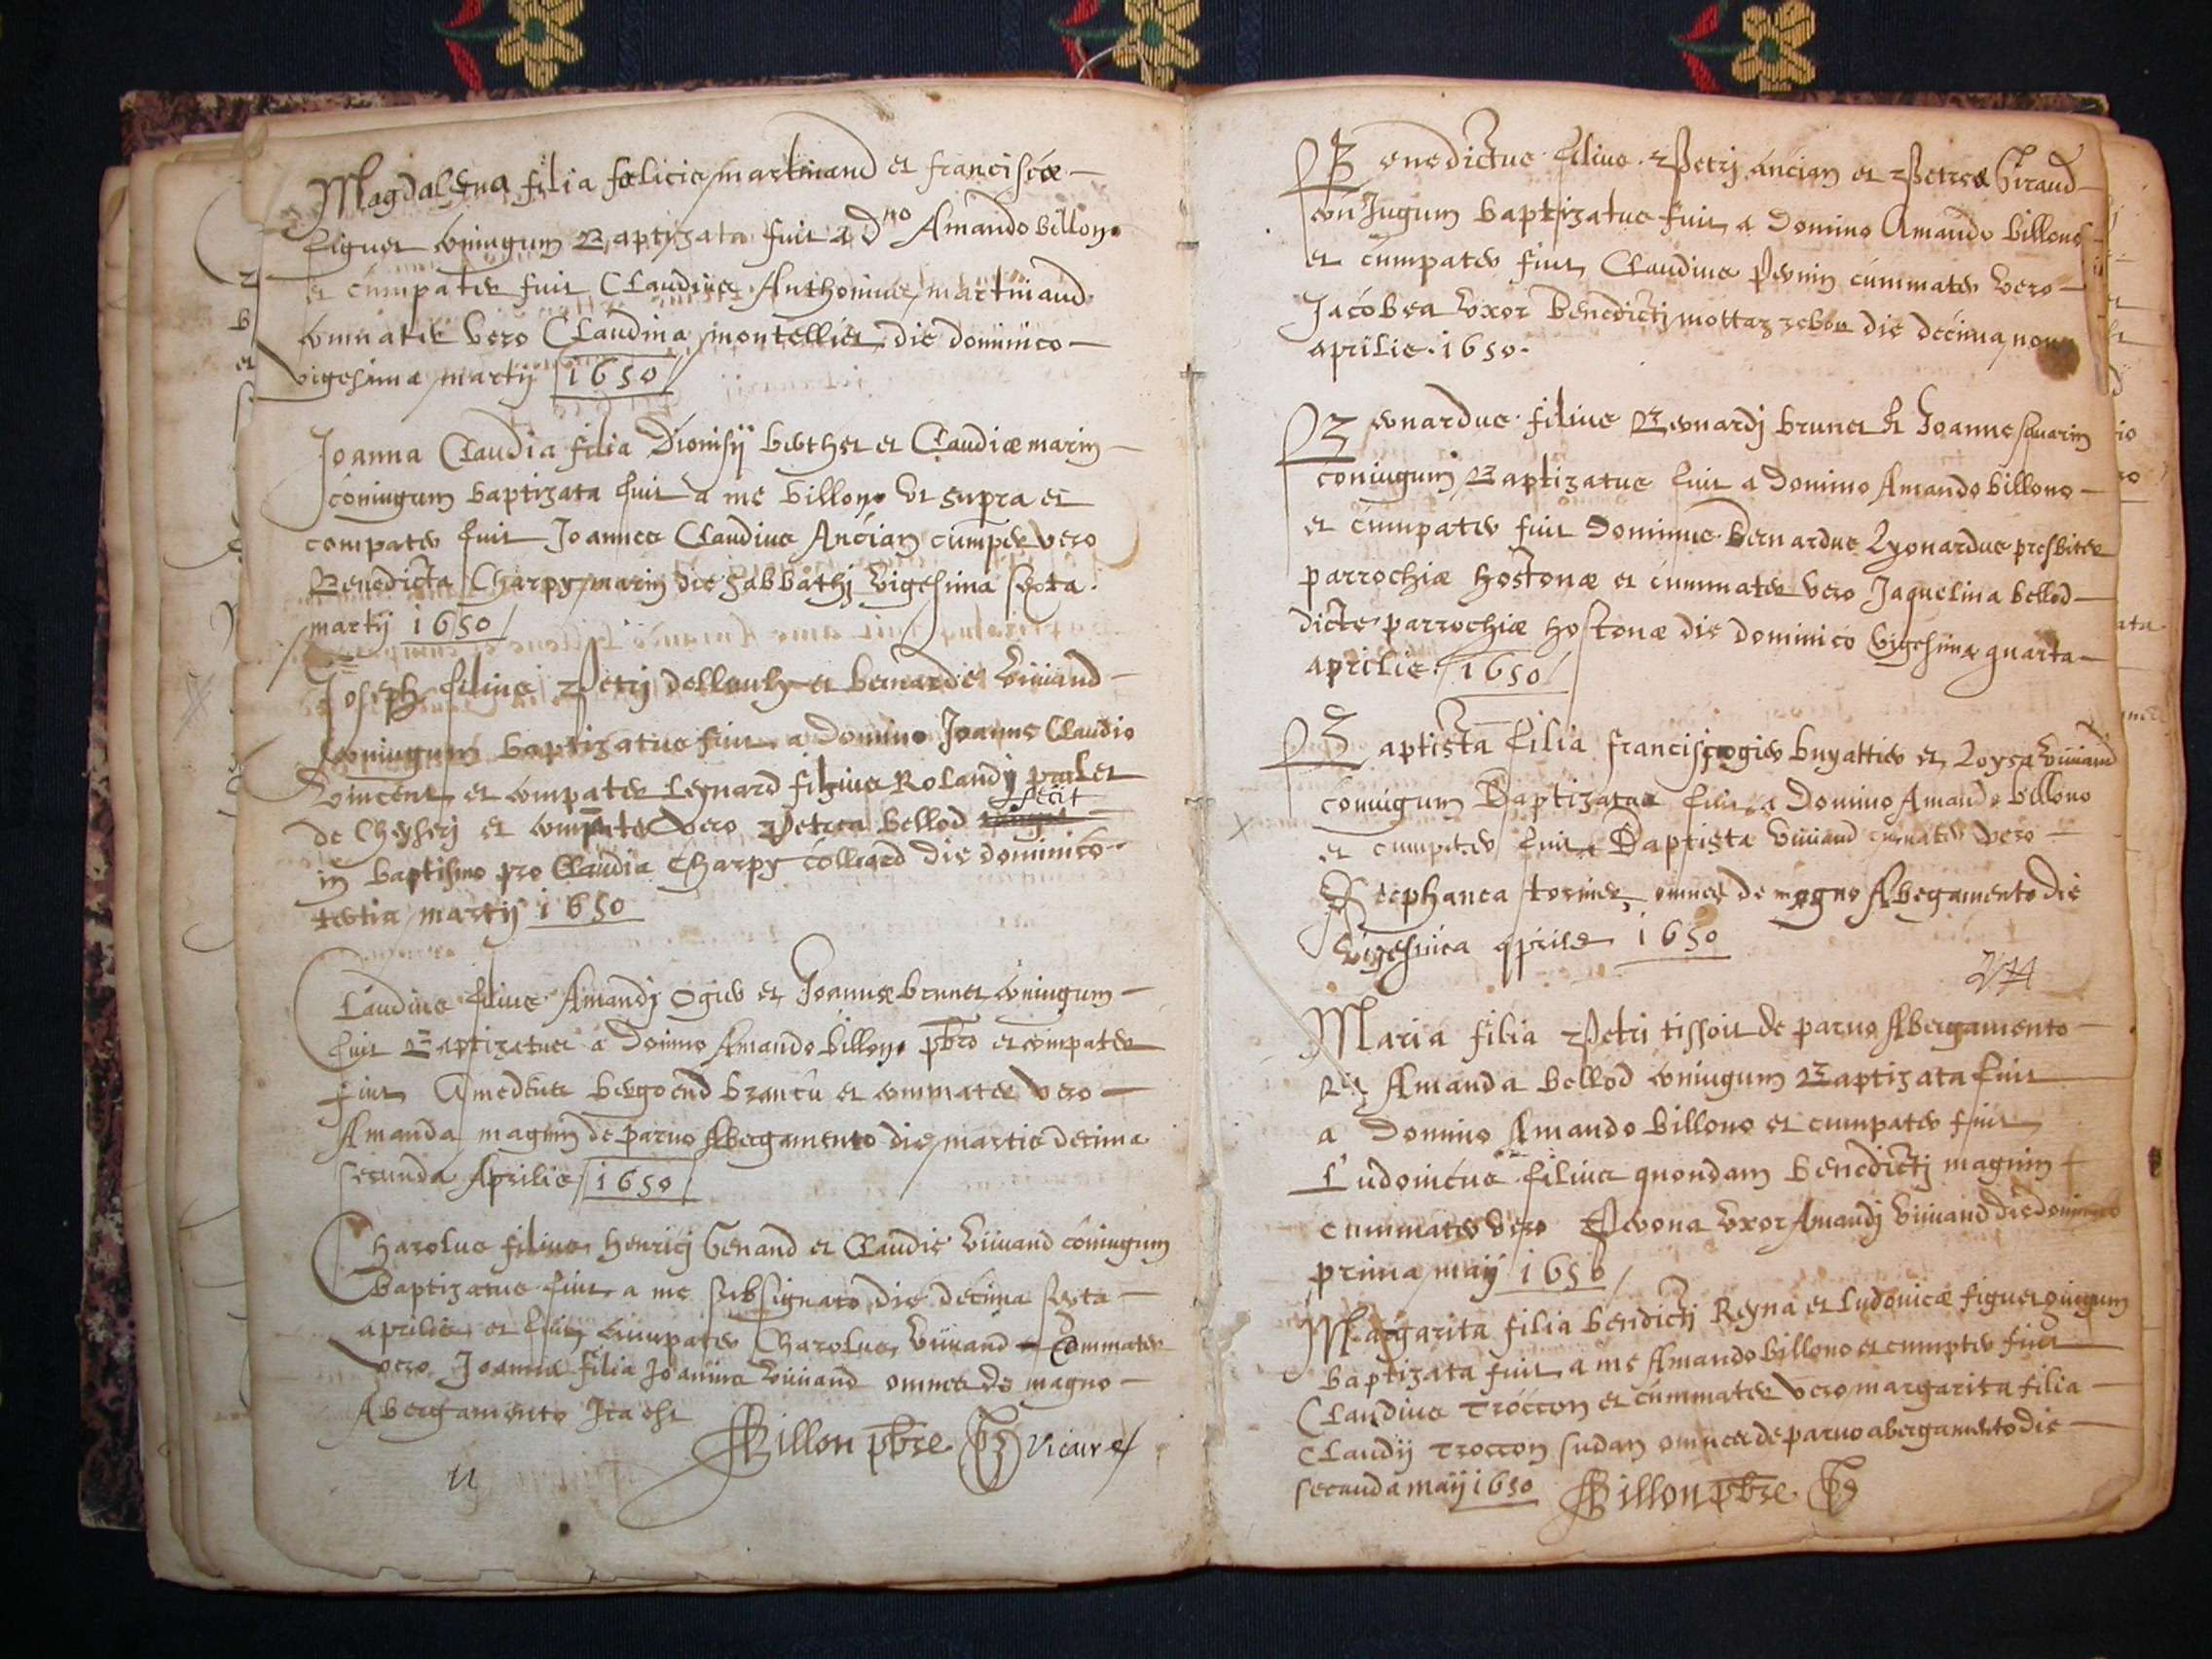 Magdalena filia fœlicis martinand et franciscæ
figuet coniugum Baptizata fuit a Dno Amando billono
et cumpater fuit Claudius Anthonius martinand
commater vero Claudina montellier die dominico
vigesima martij 1650
Joanna Claudia filia Dionisij berthet et Claudiæ marin
coniugum baptizata fuit a me billono ut supra et
compater fuit Joannes Claudius Ancian cumper vero
Benedicta Charpy marin die sabbathj vigesima sexta
martij 1650
Joseph filius Petrj et bernardæ viuiand
coniugum baptizatus fuit a Domino Joanne Claudio
vincent et compater Leynard filius Rolandj
fecit
de Cheyserj et vero Petrea bellod
in baptismo pro Claudia Charpy colliard die dominico
tertia martij 1650
Claudius filius Amandj Ogier et Joannæ brunet coniugum
fuit Baptizatus a Domino Amando billono pbro et compater
fuit Amedeus bergoend brancu et commater vero
Amanda magnin de paruo Abergamento die martis decima
secunda Aprilis 1650
Charolus filius henricj Genand et Claudiæ viuiand coniugum
Baptizatus fuit a me subsignato die decima sexta
aprilis et fuit cumpater Charolus viuiand commater
vero Joanna filia Joannis viuiand omnes de magno
Abergamento Ita est
Billon pbre vicaire
11
Benedictus filius Petrj ancian et Petreæ Giraud
con Jugum baptizatus fuit a Domino Amando billono
et cumpater fuit Claudius Pernin cummater vero
Jacobea vxor Benedictj mottaz die decima nona
aprilis 1650
Bernardus filius Bernardj brunet et Joanne sauarin
coniugum Baptizatus fuit a Domino Amando billono
et cumpater fuit Dominus bernardus Lyonardus presbiter
parrochiæ hostonæ et cummater vero Jaquelina bellod
dicte parrochiæ hostonæ die dominico vigesima quarta
aprilis 1650
Baptista filia francisj ogier buyattier et Loysa viuiand
coniugum Baptizata fuit a Domino Amando billono
et cumpater fuit Baptista viuiand cumater vero
Stephanea tornier omnes de magno Abegamento die
aprile 1650
Maria filia Petri tissoit de paruo Abergamento
et Amanda bellod coniugum Baptizata fuit
a Domino Amando billono et cumpater fuit
Ludouicus filius quondam benedictj magnin
cummater vero Peronа vxor Amandj viuiand die dominico
prima maij 1650
Margarita filia bendictj Reyna et Ludouicæ figuet
baptizata fuit a me Amando billono et cumpter fuit
Claudius Troccon et cummater vero margarita filia
Claudij Troccon sudan omnes de paruo abergamento die
secunda maij 1650 Billon pbre